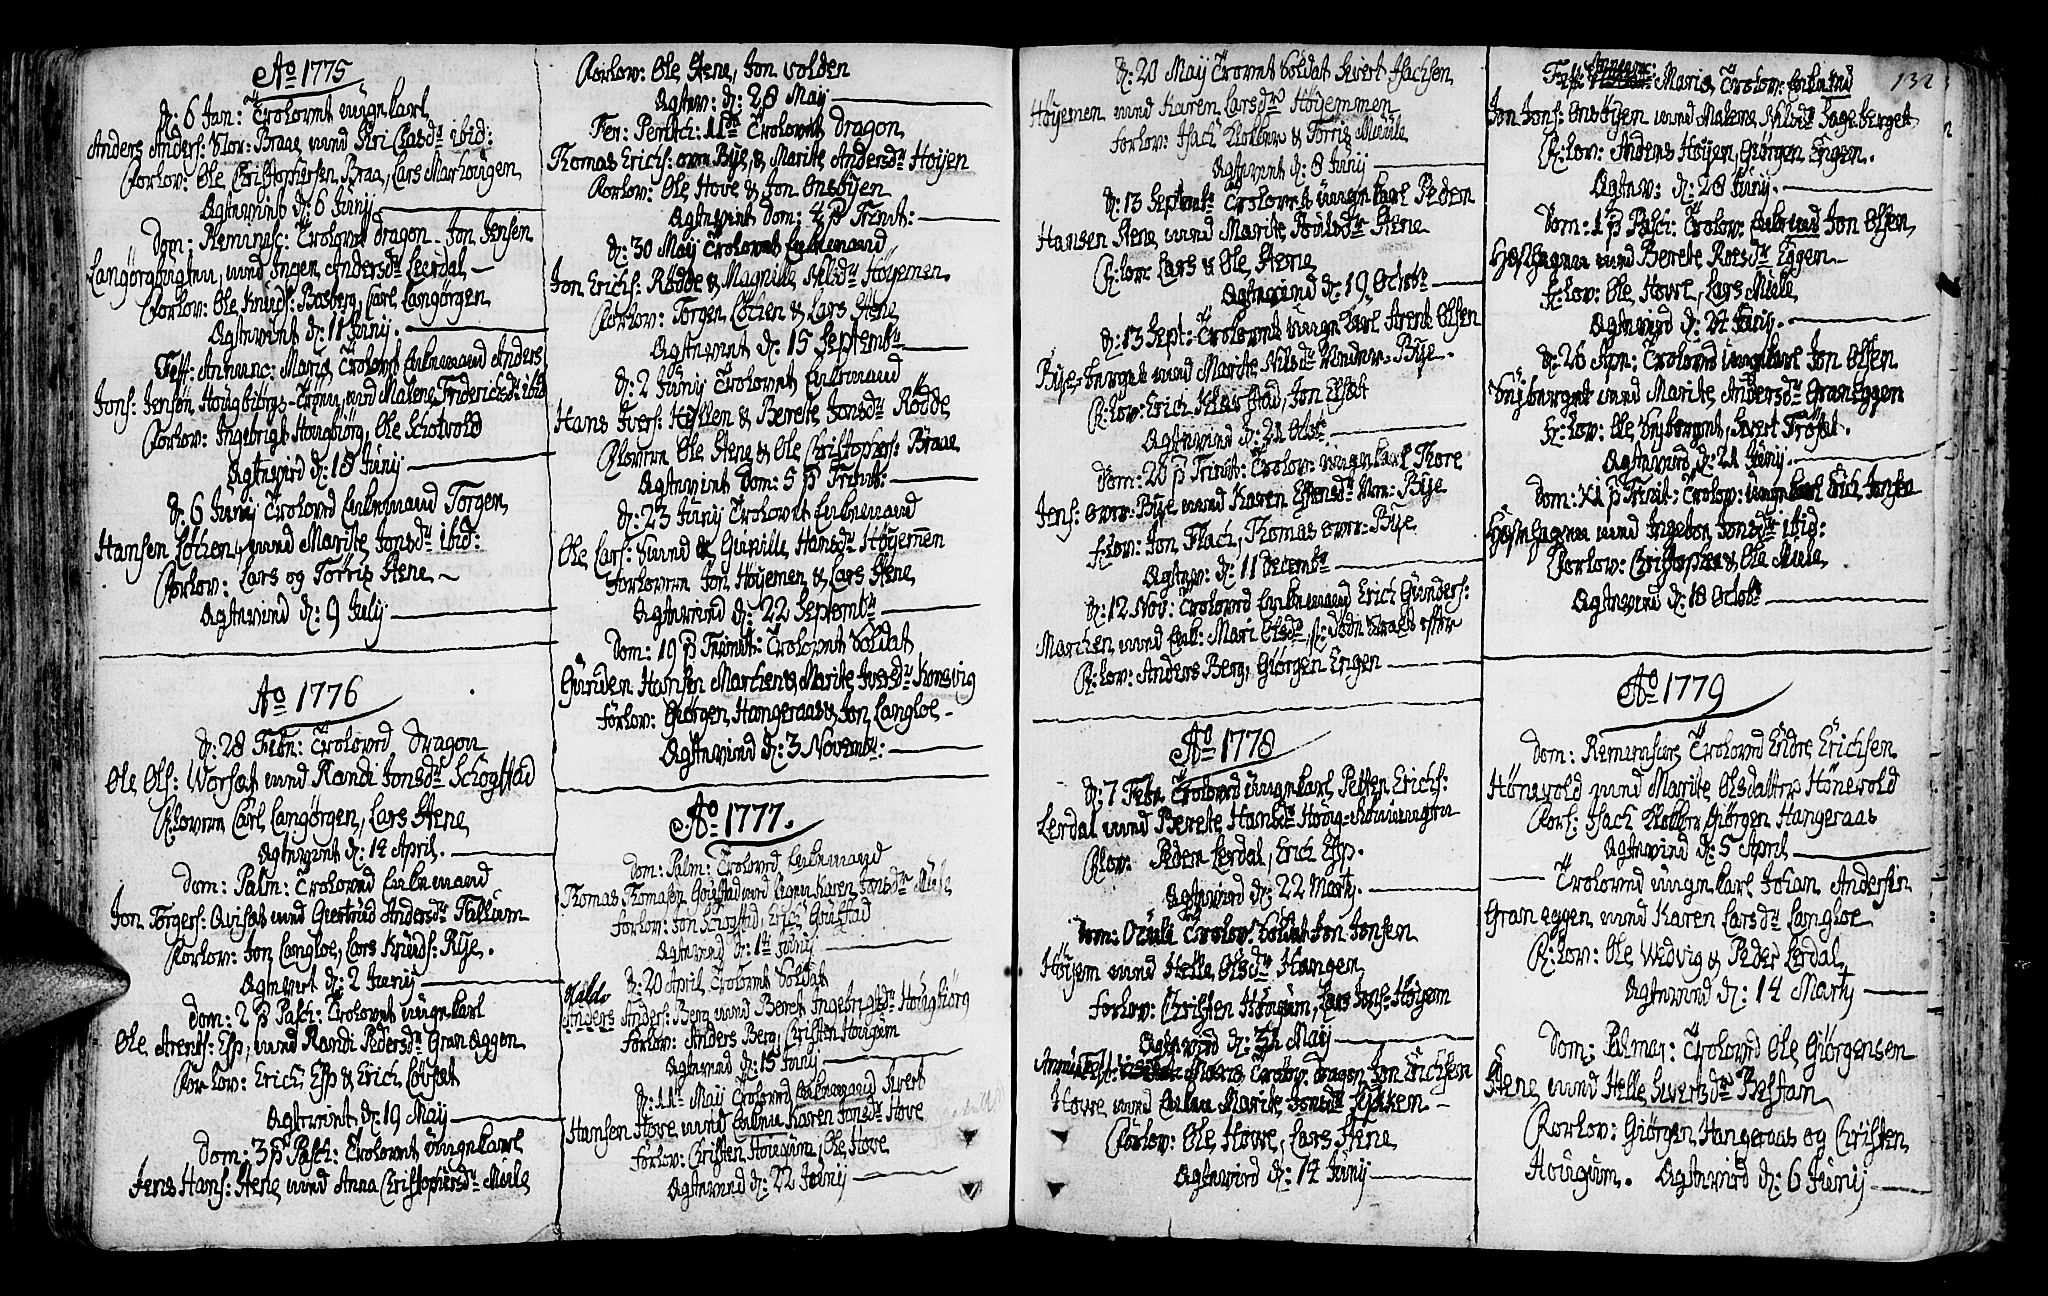 Ao 1775
d: 6 Jan: Trolovet ungkarl
Anders Anders: Stor: Braae med Siri Olasdr ibid:
Forlov: Ole Christophersen Braa, Lars Marhougen
Egteviet d: 6 Junij
Dom: Reminisc: Trolovet dragon Jon Jensen
Langörg med Ingen Andersdr Leerdal
Forlov: Ole Knuds: Bosberg, Carl Langörgen
Egteviet d: 11 Junij.
Fest: Anunc: Mariæ Trolovet Enkemand Anders
Jons: Jensen Hougbiörg med Malene Friderichsdr ibid
Forlov: Ingebrigt Hougbiörg, Ole Schotvold
Egtevied d: 18 Junij
d: 6 Junij Trolovd Enkemand Torgen
Hansen Löthen, med Marite Jonsdr ibid:
Forlov: Lars og Torris Stene
Egtevied d: 9 Julij
Ao 1776
d: 28 Febr: Trolovd dragon
Ole Ols: Worset med Randi Jonsdr Schogstad
F:lovern Carl Langörgen, Lars Stene
Egteviet d: 14 April.
Dom: Palm: Trolovd Enkemand
Jon Torgers: Qvisæt med Giertrud Andersdr Fallium
Forlov: Jon Langloe, Lars Knuds: Rye.
Egteviet d: 2 Junij
Dom: 2 p Pasch: Trolovet ungkarl
Ole Arents: Esp, med Randi Pedersdr Graneggen
Forlov: Erich Esp & Erich Løvset
Egteviet d: 19 Maij
Dom: 3 p Pasch: Trolovet ungkarl
Jens Hans: Stene med Anna Christophersdr Mule
Forlov: Ole Stene, Jon volden
Egtev: d: 28 Maij
Fer: Pentec: 11de Trolovet dragon
Thomas Erichs: ovr Bye, & Marite Andersdr Höyen
Forlov: Ole Hove & Jon Onsöyen
Egteviet Dom: 4 p Trinit:
d: 30 Maij Trolovet Enkemand
Jon Erichs: Rödde & Magnille Nilsdr Höyemen
Forlov: Torgen Löthen & Lars Stene
Egteviet d: 15 Septembr
d: 2 Junij Trolovet Enkemand
Hans Ivers: Hyllen & Berette Jonsdr Rödde
F:lovern Ole Stene & Ole Christophers: Braae
Egteviet Dom: 5 p Trinit:
d: 23 Junij Trolovet Enkemand
Ole Lars: Sund & Gunille Hansdr Höyemen
Forlovern Jon Höyemen & Lars Stene
Egtevied d: 22 Septembr
Dom: 19 p Trinit: Trolovet Soldat
Gunder Hansen Marchen & Marite Iversdr Konsvig
Forlov: Giörgen Hangeraas & Jon Langloe
Egtevied d: 3 Novembr:
Ao 1777.
Dom: Palm: Trolovd Enkemand
Thomas Thomasen Grustad med Karen Jonsdr Mule
Forlov: Jon Schogstad, Erich Grustad
Egtevied d: 14 Junij
d: 20 April Trolovet Soldat
Haldo
Anders Anders: Berg med Beret Ingebrigtsdr Hougbiörg
Forlov: Anders Berg, Christen Hougum
Egtevied d: 15 Junij
d: 11te Maij Trolovd Enkemand Sivert
Hansen Hove med Enken Karen Jonsdr Hove
Forlov: Christen Hougum, Ole Hove
Egtevied d: 22 Junij
d: 20 Maij Trolovet Soldat Sivert Isachsen
Höyemen med Karen Larsdr Höyemmen
Forlov: Isach Klokker & Torris Mule
Egteviet d: 8 Junij
d: 13 Septembr Trolovet ungkarl Pedem
Hansen Stene med Marite Poulsdr Stene
F:lov: Lars & Ole Stene
Egtevied d: 19 Octobr
d: 13 Sept: Trolovet ungkarl Arent Olsen
Byesberget med Marite Nilsdr Neder: Bye.
F:lov: Erich Klæstad, Jon Elset
Egtevied d: 21 Octbr
Dom: 20 p Trinit: Trolov: ungkarl Thore
Jens: ovr: Bye med Karen Estensdr Ner: Bye
F:lov: Jon Flach, Thomas over: Bye
Egtev: d: 11 Decembr
d: 12 Nov: Trolovd Enkemand Erich Gunders:
Marchen med Enk: Mari Olsdr,
F:lov: Anders Berg, Giörgen Engen
Ao 1778
d: 7 Febr Trolovd ungkarl Petter Erichs:
Lerdal med Berete Hansdr Houg
F:lov: Peder Lerdal, Erich Esp.
Egtevied d: 22 Martj.
Dom: Oculi Trolov: Soldat Jon Jonsen
Höyem med Helle Olsdr Hangen
Forlov: Christen Hougum, Lars Jons: Höyem
Egtevied d: 31 Maij
Fest: Mariæ Trolov: dragon Jon Erichsen
Hove med Enken Marite Jonsdr
Forlov: Ole Hove, Lars Stene
Egtevied d: 14 Junij
132
Fest: Annunc: Mariæ Trolov: Enkemd
Jon Jons: Onsöyen med Malene Nilsdr Fageberget
F:lov: Anders Höyen, Giörgen Engen.
Egtev: d: 28 Junij.
Dom: 1 p Pasch: Trolov: Enkemd Jon Olsen
med Berete Roesdr Eggen
F:lov: Ole Hove, Lars Mule
Egtevied d: 24 Junij.
d: 26 Apr: Trolovd ungkarl Jon Olsen
med Marite Andersdr Graneggen
F:lov: Ole Sivert Tröset.
Egtevied d: 21 Junij.
Dom: XI p Trinit: Trolov: ungkarl Erich Jonsen
med Ingebor Jonsdr ibid:
Forlov: Christopher & Ole Mule
Egtevied d: 18 Octobr
Ao 1779
Dom: Reminisere Trolovd Endre Erichsen
Hönevold med Marite Olsdatter Hönevold
Forl: Isach Klokker, Giörgen Hangeraas
Egtevied d: 5 April
Trolovd ungkarl Johan Andersen
Graneggen med Karen Larsdr Langloe
F:lov: Ole Wedvig & Peder Lerdal
Egtevied d: 14 Martij
Dom: Palmar: Trolovd Ole Giörgensen
Stene med Helle Sivertsdr Bestan
Forlov: Giörgen Hangeraas og Christen
Hougum. Egtevied d: 6 Junij